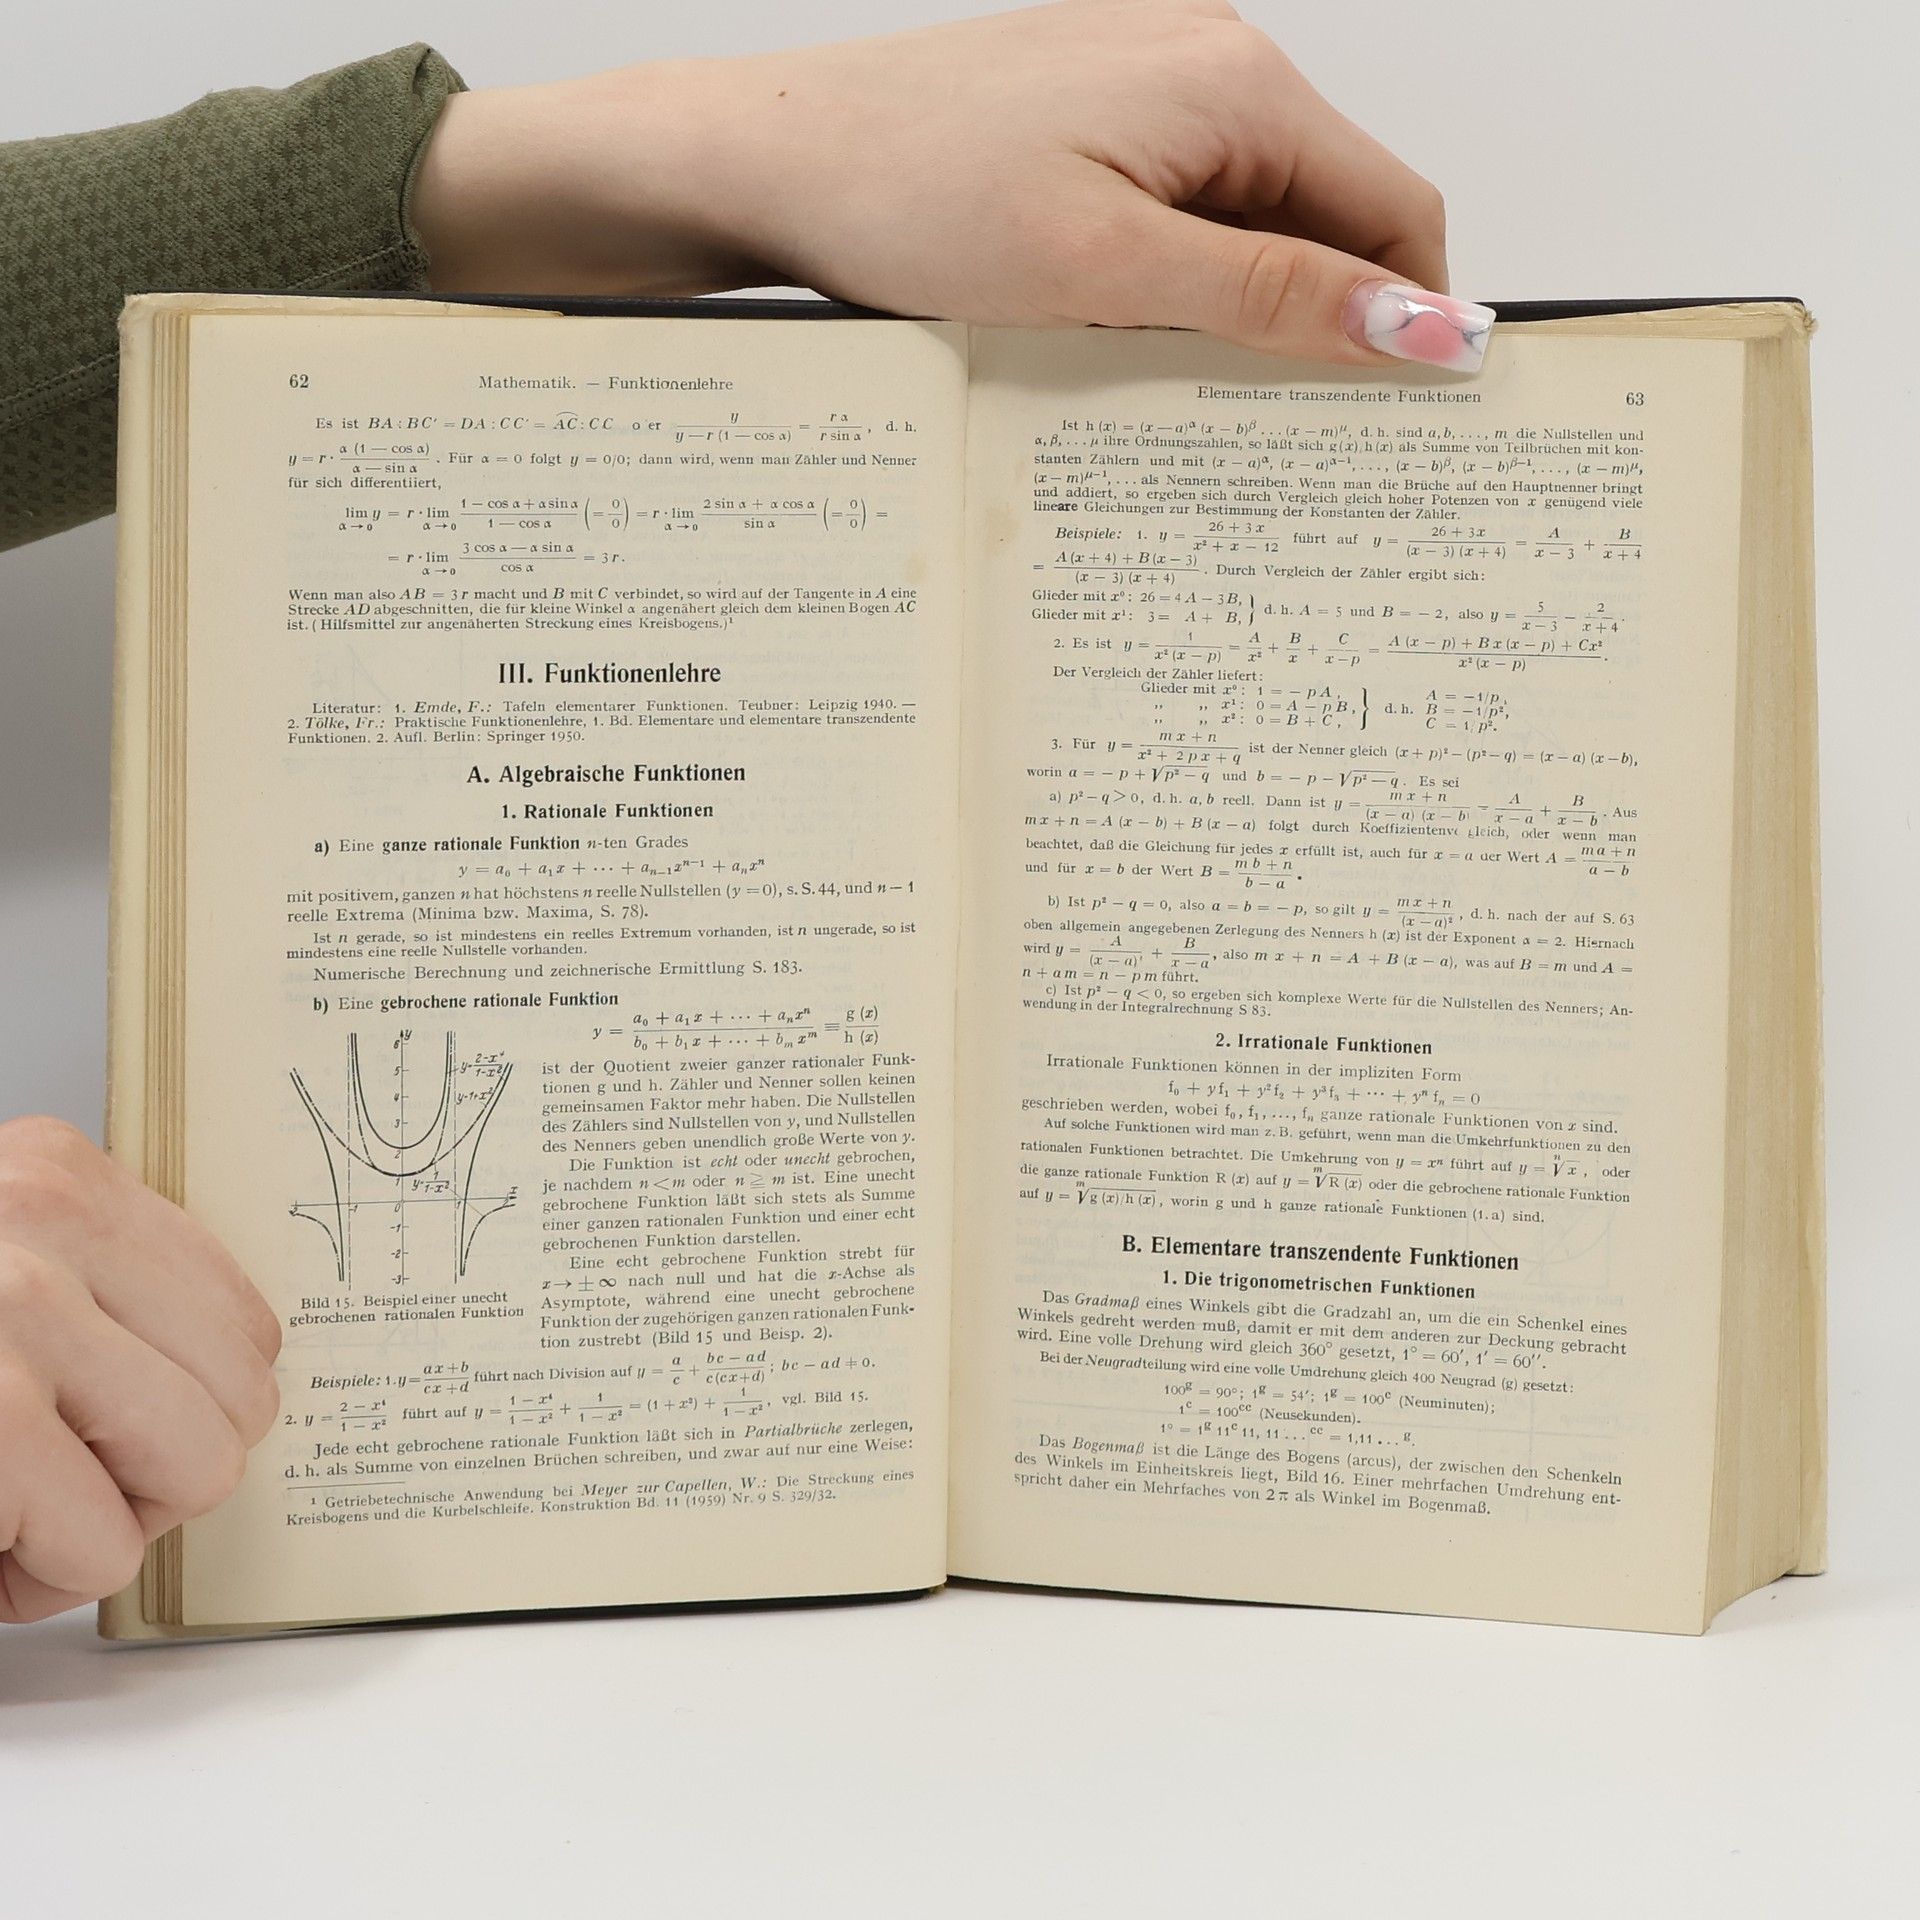 62 Mathematik. — Funktionenlehre
Es ist BA : BC' = DA : CC' = AC : CC o er y / (y — r (1 — cos α)) = r α / (r sin α), d. h.
y = r · α (1 — cos α) / (α — sin α). Für α = 0 folgt y = 0/0; dann wird, wenn man Zähler und Nenner
für sich differentiiert,
lim y (α→0) = r · lim (α→0) (1 — cos α + α sin α) / (1 — cos α) (= 0/0) = r · lim (α→0) (2 sin α + α cos α) / sin α (= 0/0) =
= r · lim (α→0) (3 cos α — α sin α) / cos α = 3 r.
Wenn man also AB = 3 r macht und B mit C verbindet, so wird auf der Tangente in A eine
Strecke AD abgeschnitten, die für kleine Winkel α angenähert gleich dem kleinen Bogen AC
ist. (Hilfsmittel zur angenäherten Streckung eines Kreisbogens.)¹
III. Funktionenlehre
Literatur: 1. Emde, F.: Tafeln elementarer Funktionen. Teubner: Leipzig 1940. —
2. Tölke, Fr.: Praktische Funktionenlehre, 1. Bd. Elementare und elementare transzendente
Funktionen. 2. Aufl. Berlin: Springer 1950.
A. Algebraische Funktionen
1. Rationale Funktionen
a) Eine ganze rationale Funktion n-ten Grades
y = a₀ + a₁x + ··· + aₙ₋₁xⁿ⁻¹ + aₙxⁿ
mit positivem, ganzen n hat höchstens n reelle Nullstellen (y = 0), s. S. 44, und n — 1
reelle Extrema (Minima bzw. Maxima, S. 78).
Ist n gerade, so ist mindestens ein reelles Extremum vorhanden, ist n ungerade, so ist
mindestens eine reelle Nullstelle vorhanden.
Numerische Berechnung und zeichnerische Ermittlung S. 183.
b) Eine gebrochene rationale Funktion
y = (a₀ + a₁x + ··· + aₙxⁿ) / (b₀ + b₁x + ··· + bₘxᵐ) = g (x) / h (x)
ist der Quotient zweier ganzer rationaler Funk-
tionen g und h. Zähler und Nenner sollen keinen
gemeinsamen Faktor mehr haben. Die Nullstellen
des Zählers sind Nullstellen von y, und Nullstellen
des Nenners geben unendlich große Werte von y.
Die Funktion ist echt oder unecht gebrochen,
je nachdem n < m oder n ≧ m ist. Eine unecht
gebrochene Funktion läßt sich stets als Summe
einer ganzen rationalen Funktion und einer echt
gebrochenen Funktion darstellen.
Eine echt gebrochene Funktion strebt für
x → ± ∞ nach null und hat die x-Achse als
Asymptote, während eine unecht gebrochene
Funktion der zugehörigen ganzen rationalen Funk-
tion zustrebt (Bild 15 und Beisp. 2).
y
6
5
4
3
2
1
0
-1
-2
-3
-2 -1 1 x
y=(2-x⁴)/(1-x²)
y=1+x²
y=1/(1-x²)
Bild 15. Beispiel einer unecht
gebrochenen rationalen Funktion
Beispiele: 1. y = (ax+b)/(cx+d) führt nach Division auf y = a/c + (bc — ad)/(c(cx+d)); bc — ad ≠ 0.
2. y = (2 — x⁴)/(1 — x²) führt auf y = (1 — x⁴)/(1 — x²) + 1/(1 — x²) = (1 + x²) + 1/(1 — x²), vgl. Bild 15.
Jede echt gebrochene rationale Funktion läßt sich in Partialbrüche zerlegen,
d. h. als Summe von einzelnen Brüchen schreiben, und zwar auf nur eine Weise:
¹ Getriebetechnische Anwendung bei Meyer zur Capellen, W.: Die Streckung eines
Kreisbogens und die Kurbelschleife. Konstruktion Bd. 11 (1959) Nr. 9 S. 329/32.
Elementare transzendente Funktionen 63
Ist h (x) = (x — a)^α (x — b)^β . . . (x — m)^μ, d. h. sind a, b, . . ., m die Nullstellen und
α, β, . . . μ ihre Ordnungszahlen, so läßt sich g(x)/h(x) als Summe von Teilbrüchen mit kon-
stanten Zählern und mit (x — a)^α, (x — a)^(α—1), . . ., (x — b)^β, (x — b)^(β—1), . . ., (x — m)^μ,
(x — m)^(μ—1), . . . als Nennern schreiben. Wenn man die Brüche auf den Hauptnenner bringt
und addiert, so ergeben sich durch Vergleich gleich hoher Potenzen von x genügend viele
lineare Gleichungen zur Bestimmung der Konstanten der Zähler.
Beispiele: 1. y = (26 + 3x)/(x² + x — 12) führt auf y = (26 + 3x)/((x — 3) (x + 4)) = A/(x — 3) + B/(x + 4)
= (A (x + 4) + B (x — 3))/((x — 3) (x + 4)). Durch Vergleich der Zähler ergibt sich:
Glieder mit x⁰: 26 = 4 A — 3B, }
Glieder mit x¹: 3 = A + B, } d. h. A = 5 und B = — 2, also y = 5/(x — 3) — 2/(x + 4).
2. Es ist y = 1/(x² (x — p)) = A/x² + B/x + C/(x — p) = (A (x — p) + B x (x — p) + Cx²)/(x² (x — p)).
Der Vergleich der Zähler liefert:
Glieder mit x⁰: 1 = — pA, } A = —1/p,
„ „ x¹: 0 = A — p B, } d. h. B = —1/p²,
„ „ x²: 0 = B + C, } C = 1/p².
3. Für y = (m x + n)/(x² + 2 p x + q) ist der Nenner gleich (x + p)² — (p² — q) = (x — a) (x — b),
worin a = — p + √(p² — q) und b = — p — √(p² — q). Es sei
a) p² — q > 0, d. h. a, b reell. Dann ist y = (m x + n)/((x — a) (x — b) = A/(x — a) + B/(x — b). Aus
mx + n = A (x — b) + B (x — a) folgt durch Koeffizientenv gleich, oder wenn man
beachtet, daß die Gleichung für jedes x erfüllt ist, auch für x = a der Wert A = (ma + n)/(a — b)
und für x = b der Wert B = (m b + n)/(b — a).
b) Ist p² — q = 0, also a = b = — p, so gilt y = (m x + n)/(x — a)², d. h. nach der auf S. 63
oben allgemein angegebenen Zerlegung des Nenners h (x) ist der Exponent α = 2. Hiernach
wird y = A/(x — a)² + B/(x — a), also m x + n = A + B (x — a), was auf B = m und A =
n + am = n — pm führt.
c) Ist p² — q < 0, so ergeben sich komplexe Werte für die Nullstellen des Nenners; An-
wendung in der Integralrechnung S 83.
2. Irrationale Funktionen
Irrationale Funktionen können in der impliziten Form
f₀ + yf₁ + y²f₂ + y³f₃ + ··· + yⁿ fₙ = 0
geschrieben werden, wobei f₀, f₁, . . ., fₙ ganze rationale Funktionen von x sind.
Auf solche Funktionen wird man z. B. geführt, wenn man die Umkehrfunktionen zu den
rationalen Funktionen betrachtet. Die Umkehrung von y = xⁿ führt auf y = ⁿ√x, oder
die ganze rationale Funktion R (x) auf y = ᵐ√R (x) oder die gebrochene rationale Funktion
auf y = ᵐ√(g (x)/h (x)), worin g und h ganze rationale Funktionen (1. a) sind.
B. Elementare transzendente Funktionen
1. Die trigonometrischen Funktionen
Das Gradmaß eines Winkels gibt die Gradzahl an, um die ein Schenkel eines
Winkels gedreht werden muß, damit er mit dem anderen zur Deckung gebracht
wird. Eine volle Drehung wird gleich 360° gesetzt, 1° = 60′, 1′ = 60″.
Bei der Neugradteilung wird eine volle Umdrehung gleich 400 Neugrad (g) gesetzt:
100ᵍ = 90°; 1ᵍ = 54′; 1ᵍ = 100ᶜ (Neuminuten);
1ᶜ = 100ᶜᶜ (Neusekunden).
1° = 1ᵍ 11ᶜ 11, 11 . . . ᶜᶜ = 1,11 . . . ᵍ.
Das Bogenmaß ist die Länge des Bogens (arcus), der zwischen den Schenkeln
des Winkels im Einheitskreis liegt, Bild 16. Einer mehrfachen Umdrehung ent-
spricht daher ein Mehrfaches von 2 π als Winkel im Bogenmaß.